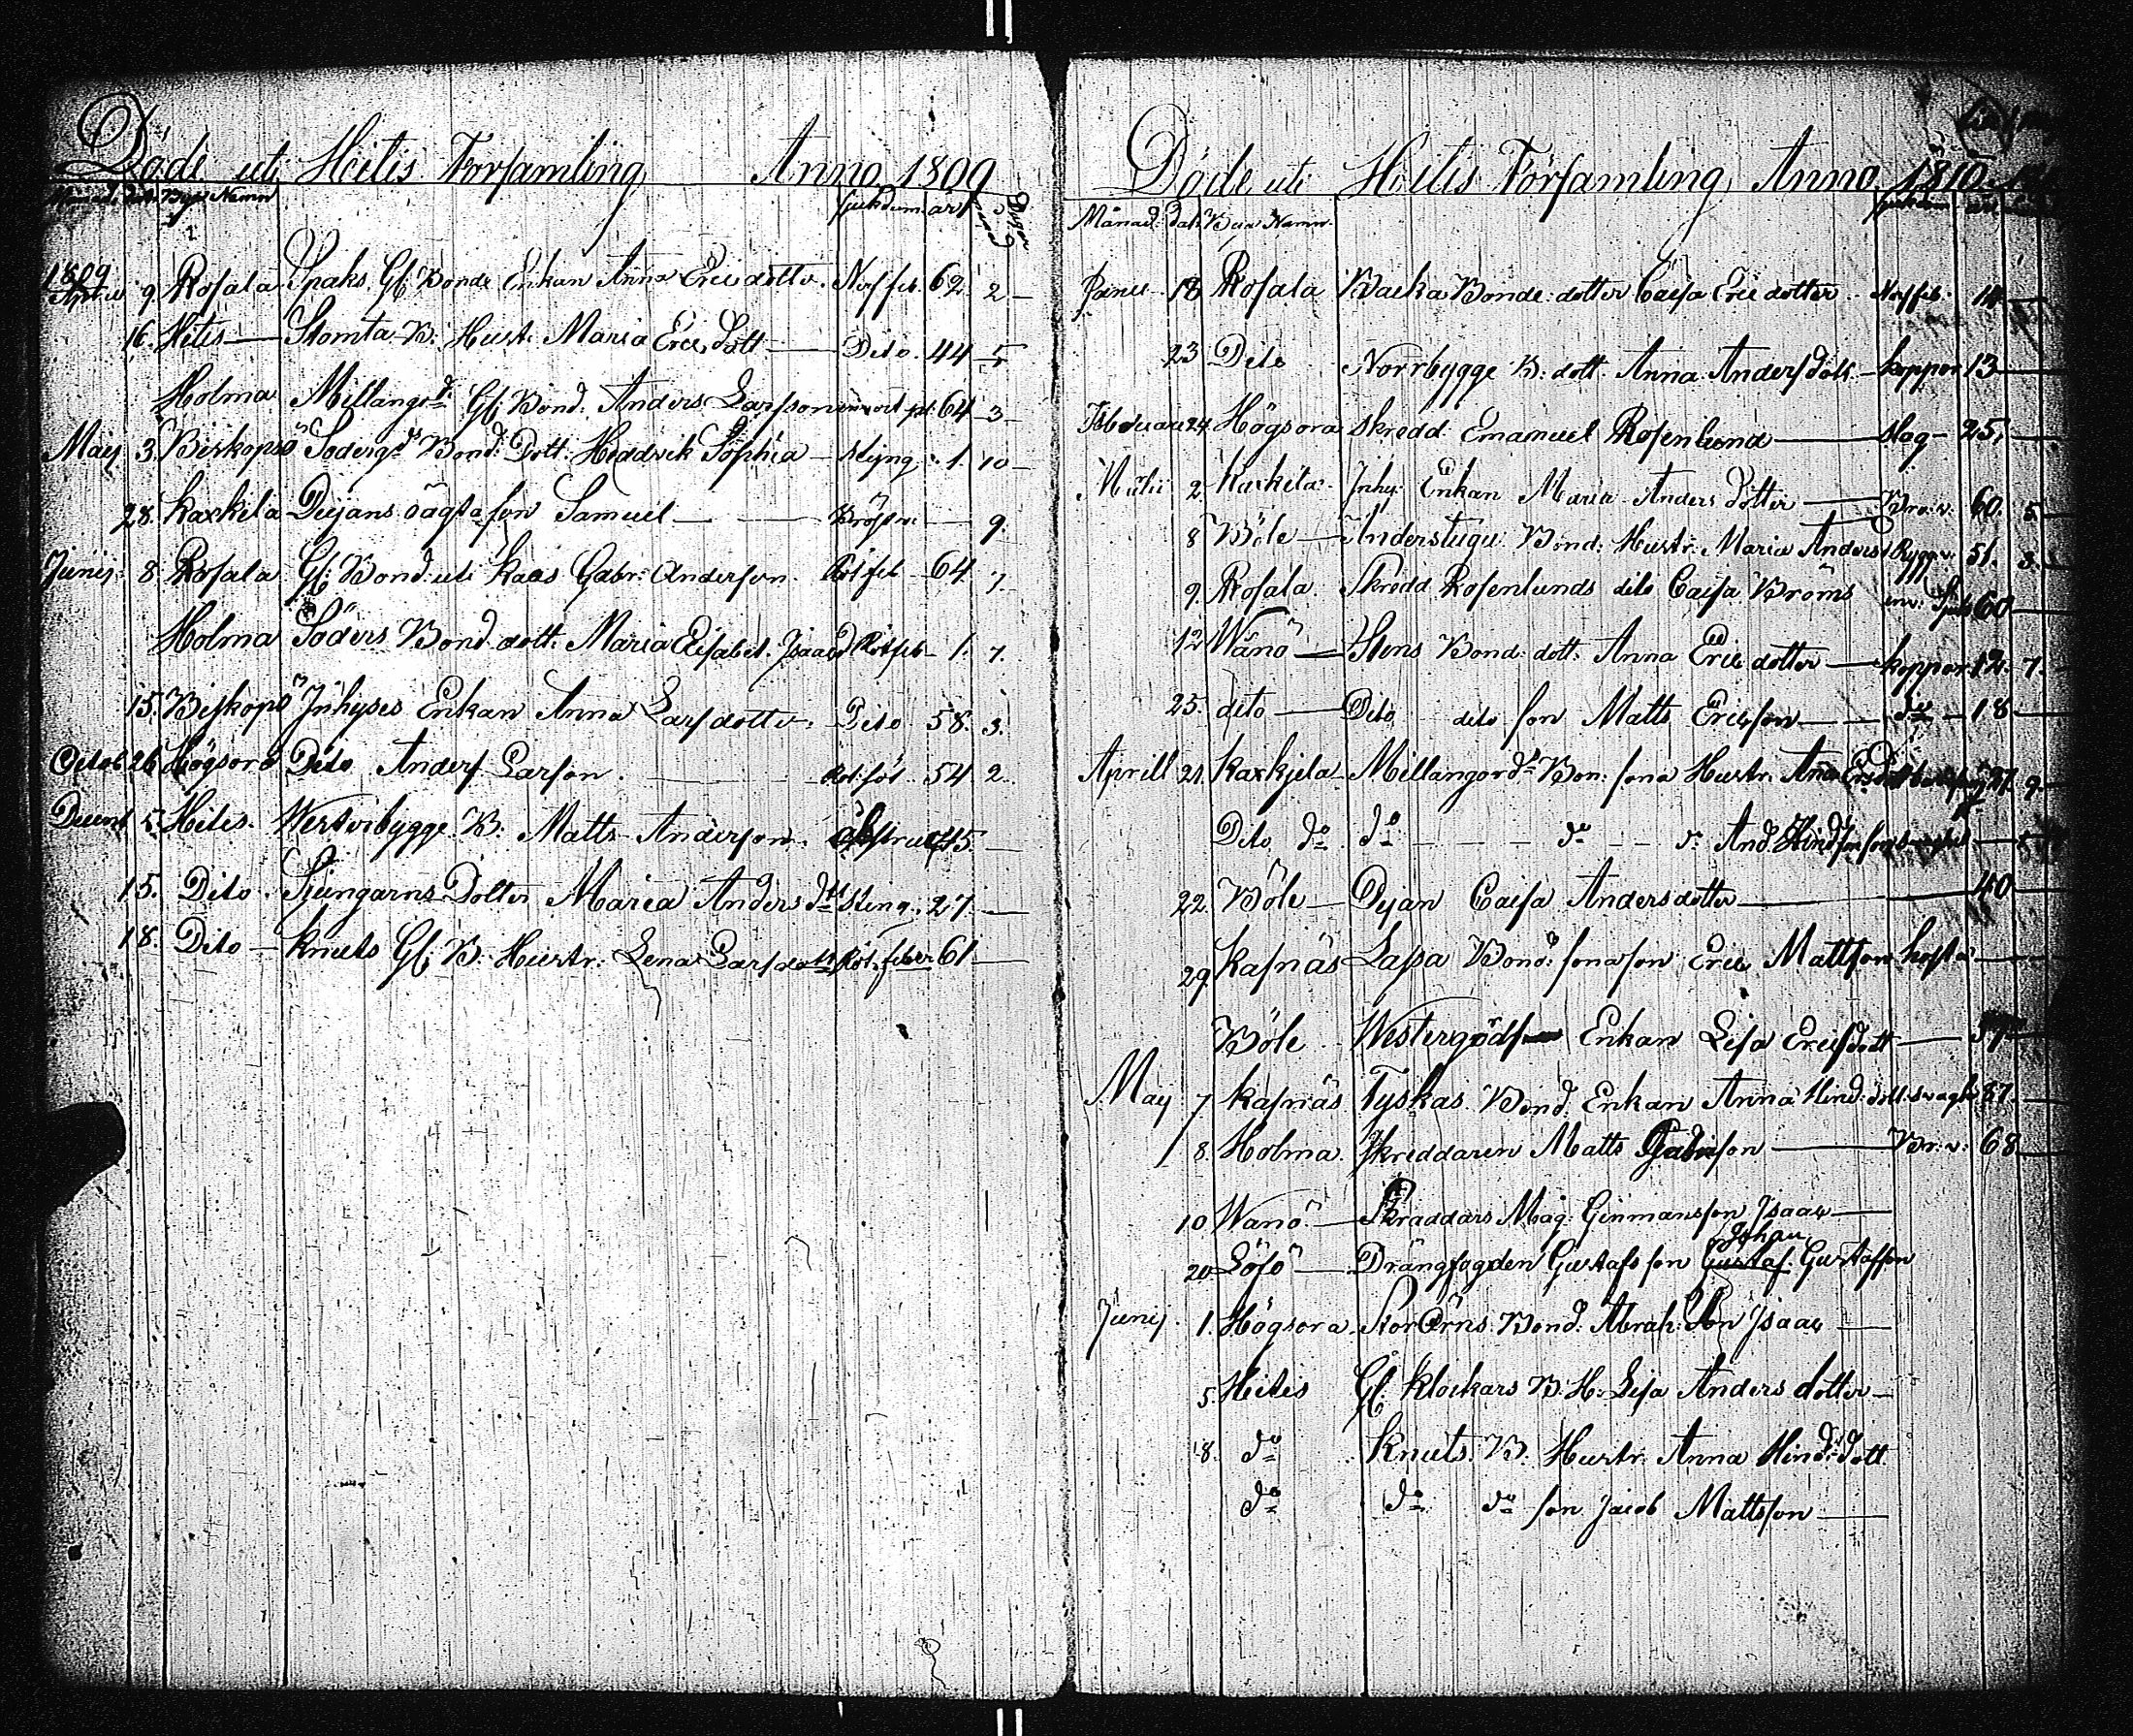 Döde uti Hitis Församling Anno 1809
Månad: dat. Byar Namn sjukdom år månad dagar
1809
April 9. Rosala Spaks Gl: Bonde Enkan Anna Ericsdotter. Nerffeb. 62. 2 —
16. Hitis — Stomta B: Hustr. Maria Erics Dott — Dito. 44 5
Holma Millangrd Gl: Bond. Anders Larsson 64 3 —
May 3. Biskopsö Söderg:ds Bond: Dott: Heddvik Sophia — Styng 1. 10 —
28. Kaxkila Dejans oägta son Samuel — Bröstv: — 9.
Junij 8. Rosala Gl: Bond: uti Kaas Gabr: Anderson. Rötfeb 64 7.
Holma Söders Bond. dott: Maria Elisabet. Isaacsd Rötfeb — 1. 7.
15. Biskopsö Inhyses Enkan Anna Larsdotter. Dito 58. 3.
Octob 26 Högsora Dito Anders Larson. — Rot: söt 54 2
Decemb 5. Hitis. Westerbygge B: Matts Anderson. obstruct 45. —
15. Dito. Ljungarns Dotter Maria Anders dtr Sting. 27. —
18. Dito — Knuts Gl: B: Hustr: Lena Larsdott Röt. feber 61 —
Döde uti Hitis Församling Anno 1810.
Månad: dat: Byar Namn. sjukdom år
Janu 18 Rosala Backa Bonde: dotter Caisa Eric dotter Nerffeb. 14
23 Dito Norrbygge B: dott. Anna Andersdott. — koppor 13 —
Februari 24 Högsora skredd. Emanuel Rosenlund — slag — 25. —
Martii 2. Kaxkila. Inhy: Enkan Maria Anders Dotter — Brö: v. 60. 5. —
8 Böle — Anderstugu Bond: Hustr: Maria Andersd Ryggv: 51. 3. —
9. Rosala. Skredd Rosenlunds dito Caisa Bröms 60 —
12 Wänö — Stens Bond: dott: Anna Eric dotter — koppor 12. 7.
25. dito — Dito dito son Matts Ericsson — do — 18 —
Aprill 21. Kaxkjela — Millangords Bon: sona Hustr. Anna 27. 9. —
Dito do do — do — And. Hind
22. Böle — Dejan Caisa Andersdotter — 40 —
29. Kasnäs Lassa Bond: sonason Eric Mattson hosta —
Böle Enkan Lisa Ericsdott — 57
May 7 Kasnäs Tyskas Bond. Enkan Anna Hind: dott. svagh 87 —
8. Holma. Skreddaren Matts Gabrison — Br: v: 68 —
10 Wänö. — Skraddars Mag: Ginmansson Isaac —
Johan
20 Löfö — Drängfogden Gustafs son Gustaf. Gustafsson
Junij. 1. Högsora. StorÖrns Bond: Abrah: Son Isaac —
5. Hitis Gl: Klockars B: H: Lisa Anders dotter —
18. do Knuts B. Hustr. Anna Hind: dott
do do do son Jacob Mattsson —